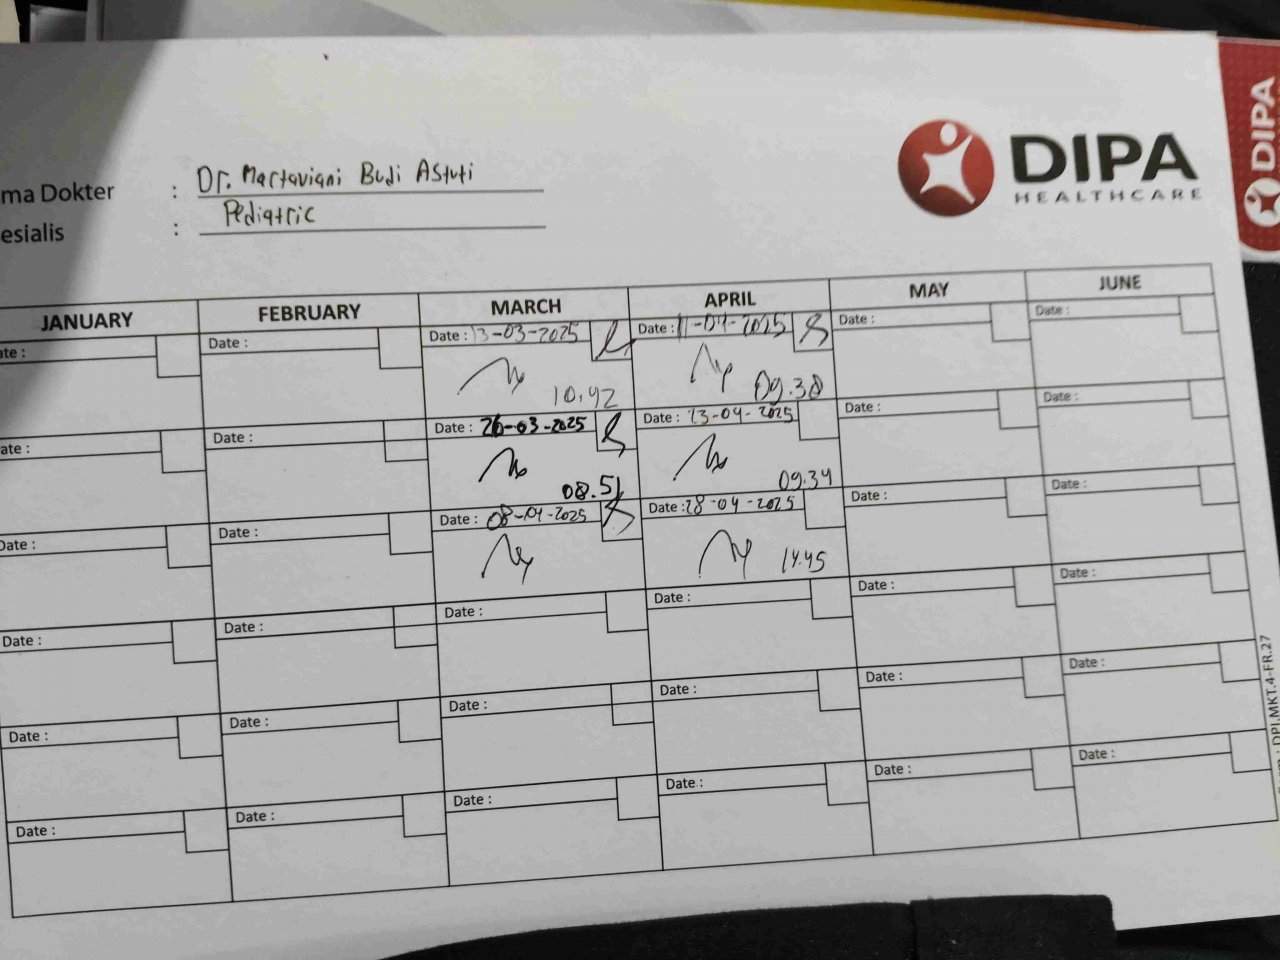 DIPA
HEALTHCARE
DIPA
ma Dokter : Dr. Martaviani Budi Astuti
esialis : Pediatric
JANUARY FEBRUARY MARCH APRIL MAY JUNE
ate : Date : Date : 13-03-2025 Date : 11-04-2025 Date : Date :
10.42 09.38
ate : Date : Date : 26-03-2025 Date : 23-04-2025 Date : Date :
08.51 09.34
Date : Date : Date : 08-04-2025 Date : 28-04-2025 Date : Date :
14.45
Date : Date : Date : Date : Date : Date :
Date : Date : Date : Date : Date : Date :
Date : Date : Date : Date : Date : Date :
DPI.MKT.4-FR.27